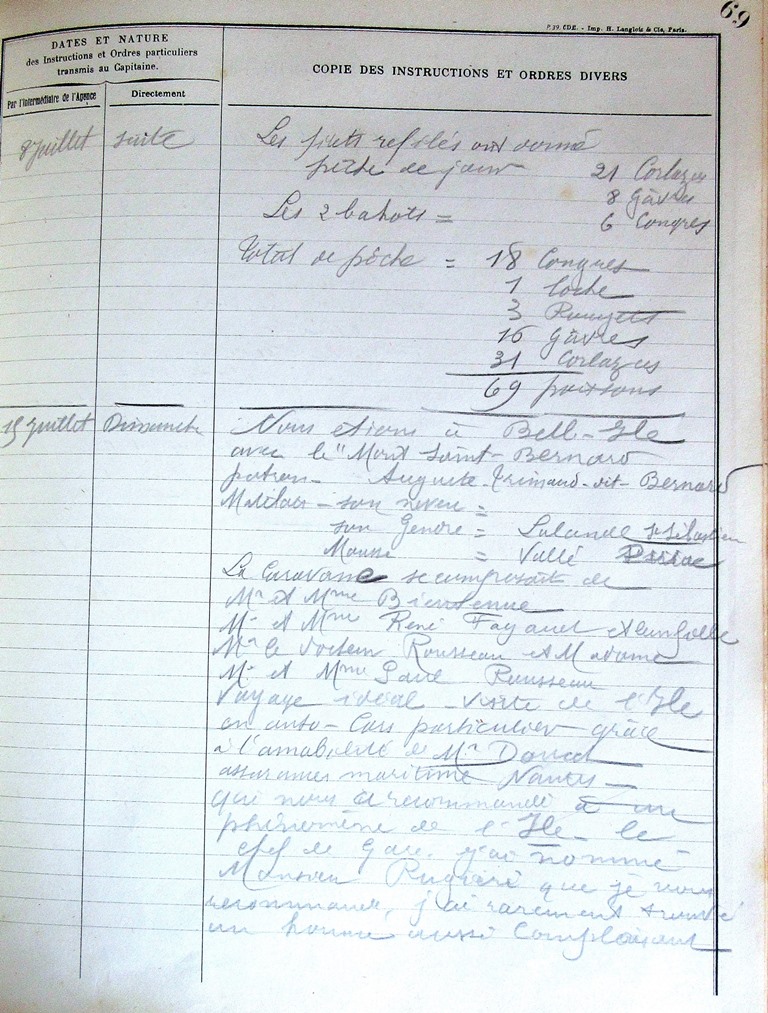 69
P 39. CDE. - Imp. H. Langlois & Cie, Paris.
DATES ET NATURE
des Instructions et Ordres particuliers
transmis au Capitaine.
COPIE DES INSTRUCTIONS ET ORDRES DIVERS
Par l'Intermédiaire de l'Agence
Directement
8 Juillet suite
Les filets refilés ont donné
pêche de jour 21 Corlazes
8 Gâvres
Les 2 bahots = 6 Congres
Total de pêche = 18 Congres
1 loche
3 Rougets
16 gâvres
31 Corlazes
69 poissons
15 Juillet Dimanche
Nous étions à Bell-Ile
avec le "Mont Saint-Bernard
patron - Auguste - Trimaud - dit - Bernard
Matelots - son neveu =
son Gendre = Lalande St Sébastien
Mousse = Vallé
La Caravane se composait de
Mr et Mme Bienvenue
Mr et Mme René Fayauet et leur fille
Mr le Docteur Rousseau et Madame
Mr et Mme Paul Rousseau
Voyage idéal - visite de l'Ile
en auto-Cars particulier grâce
à l'amabilité de Mr
assurances maritime Nantes
qui nous a recommandé à un
phénomène de l'Ile - le
chef de Gare, j'ai nommé
Monsieur Rugieri que je vous
recommande, j'ai rarement trouvé
un homme aussi Complaisant